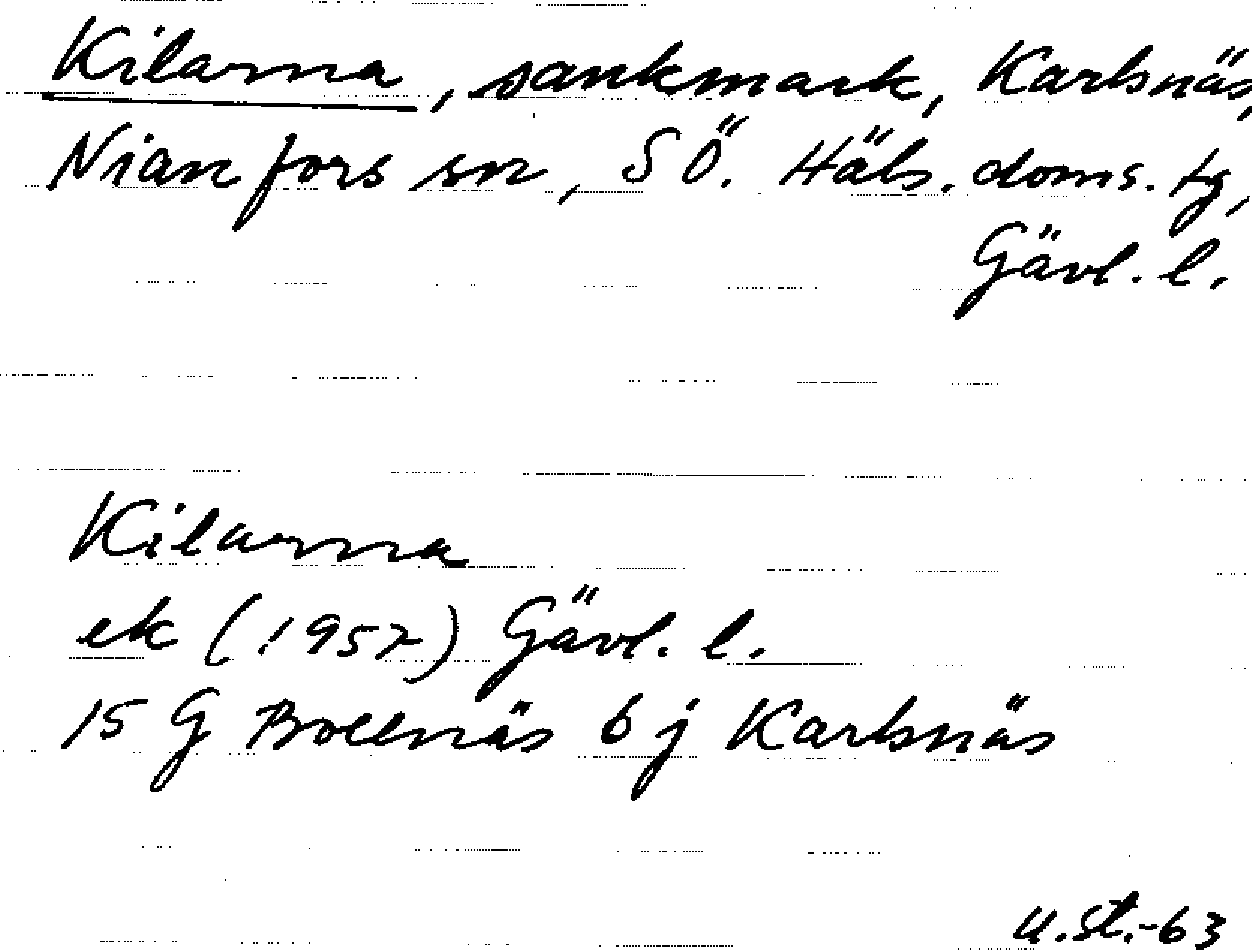 Kilarna, sankmark, Karlsnäs,
Nianfors sn, SÖ. Häls. doms. tg,
Gävl. l.
Kilarna
ek (1957) Gävl. l.
15 G Bollnäs 6 j Karlsnäs
U.St.-63